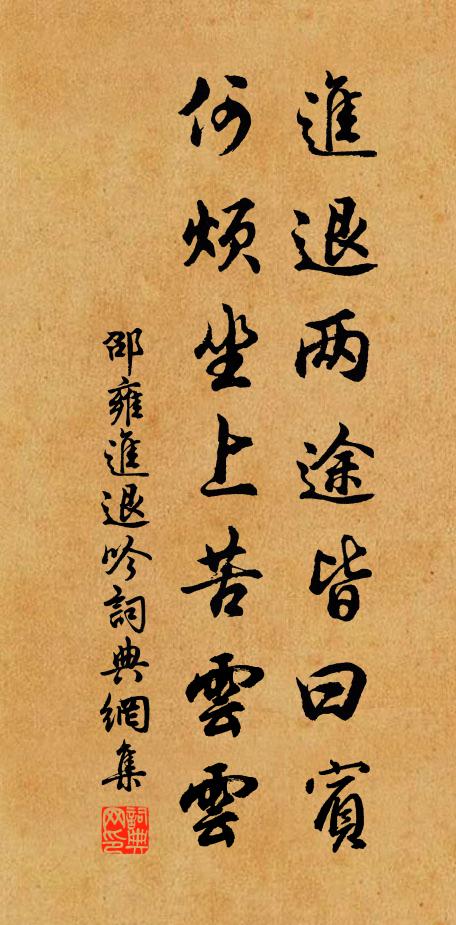 進退两途皆曰賓
何煩坐上苦雲雲
邵雍進退吟詞典網集
詞典网印